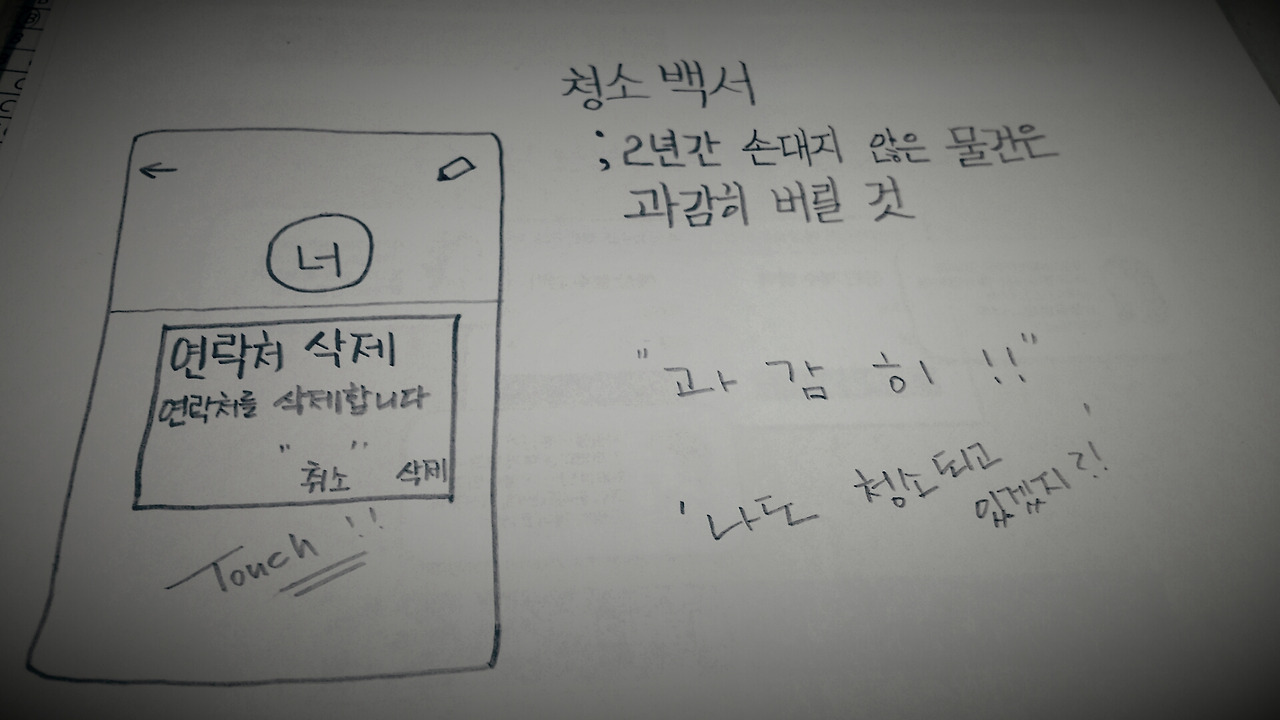 청소 백서
; 2년간 손대지 않은 물건은
과감히 버릴 것
너
연락처 삭제
연락처를 삭제합니다
"취소" 삭제
Touch !!
"과 감 히 !!"
'나도 청소되고
있겠지?!'